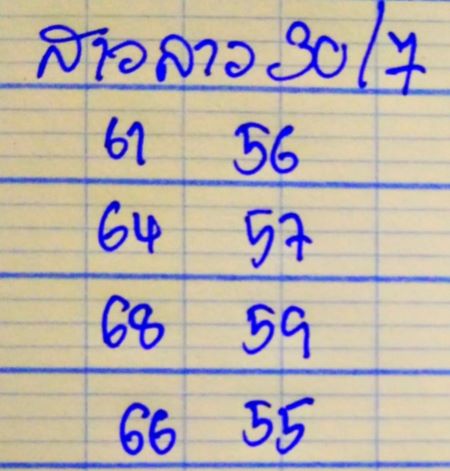 สาวลาว 30/7
61 56
64 57
68 59
66 55